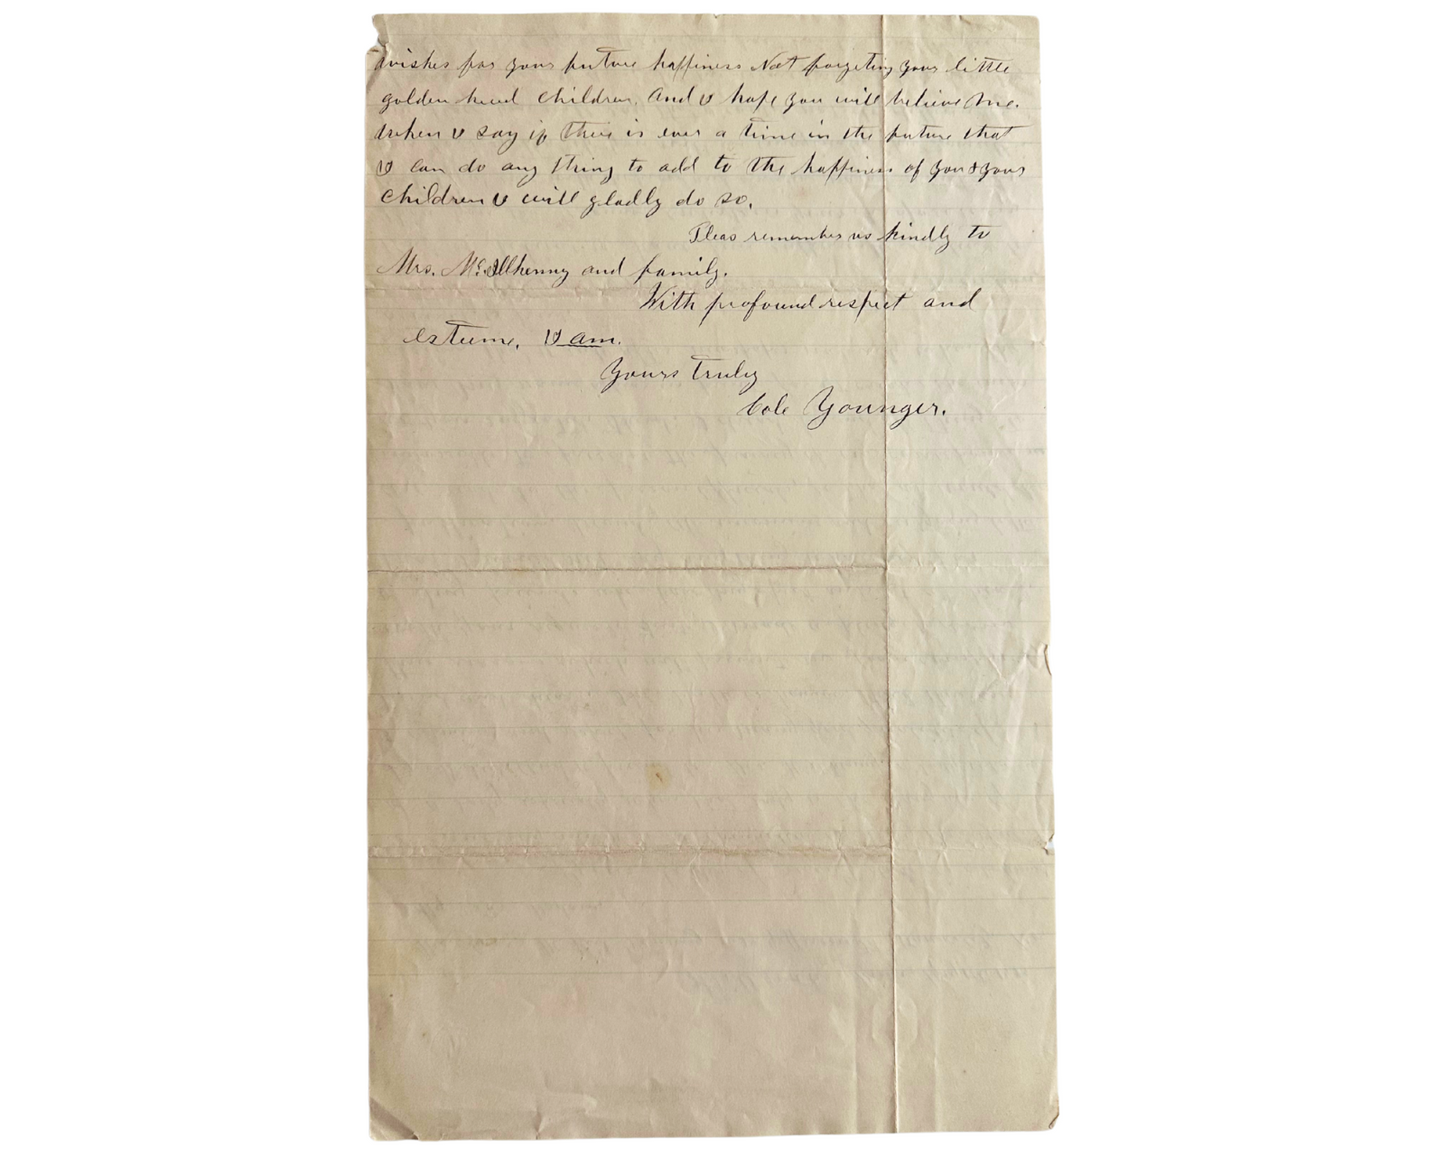 wishes for your future happiness Not forgeting your little
golden head children. And I hope you will believe me.
when I say if there is ever a time in the future that
I can do any thing to add to the happiness of you & your
children I will gladly do so.
Pleas remember us kindly to
Mrs. McIlhenny and family.
With profound respect and
esteeme, I am.
Yours Truly
Cole Younger.